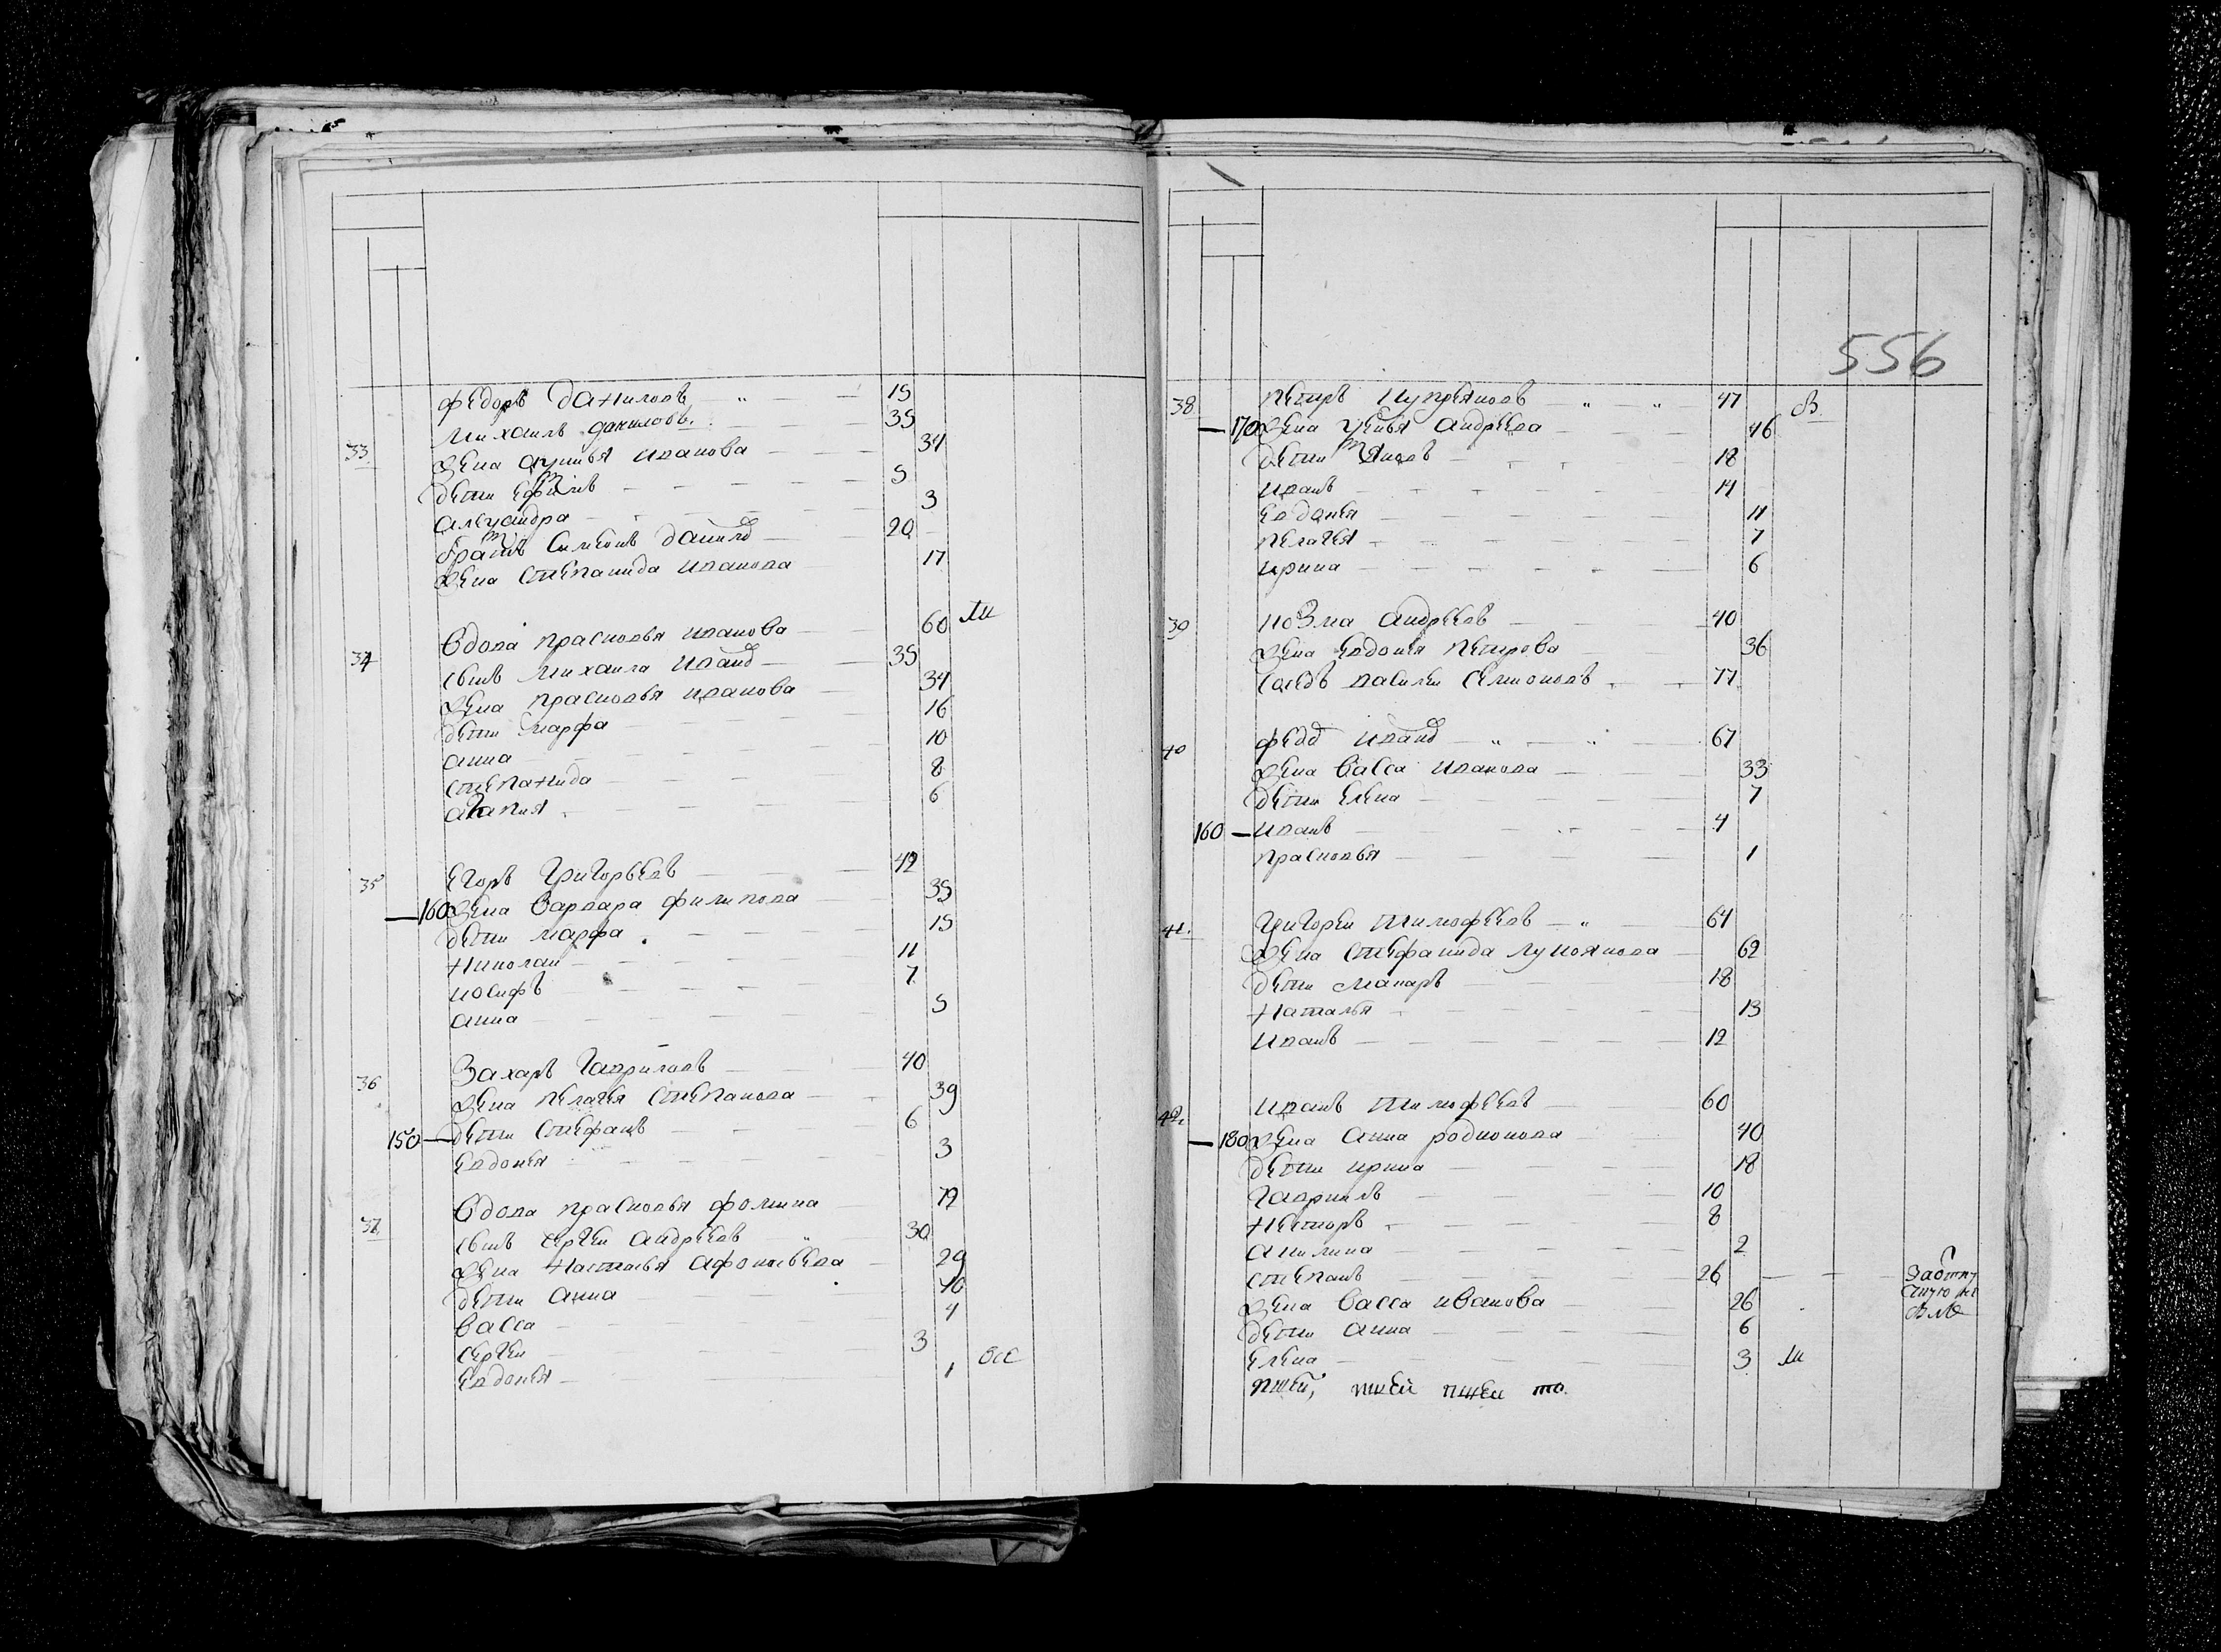 Федоръ Даниловъ 15
33 Михаилъ Даниловъ 35
жена Акулина Иванова 34
дети Ефимъ 5
Александра 3
братъ Симеонъ Данилов 20
жена Степанида Иванова 17
34 Вдова Прасковья Иванова 60
сынъ Михаила Иванов 35
жена Прасковья Иванова 34
дети Марфа 16
Анна 10
Степанида 8
Агапия 6
35 Егоръ Григорьевъ 42
160 жена Варвара Филипова 35
дети Марфа 15
Николаи 11
Иосифъ 7
Анна 5
36 Захаръ Гавриловъ 40
жена Пелагея Степанова 39
150 дети Стефанъ 6
Евдокея 3
37 Вдова Прасковья Фомина
сынъ Сергеи Андреевъ 30
жена Наталья Афонасьева 29
дети Анна 10
Васса 4
Сергеи 3
Евдокея 1
556
38 Петръ Купреяновъ 47 В
170 жена Андреева 46
дети Яковъ 18
Иванъ 14
Евдокея 11
Пелагея 7
Ирина 6
39 Козма Андреевъ 40
жена Евдокея Петрова 36
Василеи Семионовъ 77
40 Федо Иванов 67
жена Васса Иванова 33
дети Елена 7
160 Иванъ 4
Прасковья 1
41. Григореи Тимофеевъ 64
жена Стефанида Лукоянова 62
дети Макаръ 18
Наталья 13
Иванъ 12
42. Иванъ Тимофеевъ 60
180 жена Анна Родионова 40
дети Ирина 18
Гаврилъ 10
Несторъ 8
Акилина 2
Степанъ 26
жена Васса Иванова 26
дети Анна 6
Елена 3